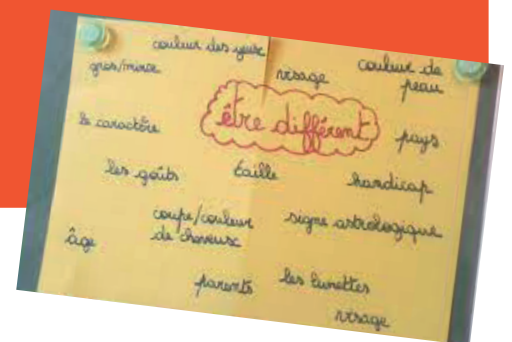 couleur des yeux
gros/mince
visage
couleur de
peau
le caractère
être différent
pays
les goûts
taille
handicap
coupe/couleur
de cheveux
signe astrologique
âge
parents
les lunettes
visage